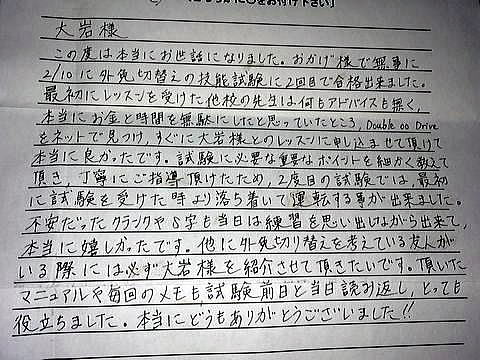 をお付け下さい」
大岩様
この度は本当にお世話になりました。おかげ様で無事に
2/10に外免切替えの技能試験に2回目で合格出来ました。
最初にレッスンを受けた他校の先生は何もアドバイスも無く、
本当にお金と時間を無駄にしたと思っていたところ、Double oo Drive
をネットで見つけ、すぐに大岩様とのレッスンに申し込ませて頂けて
本当に良かったです。試験に必要な重要なポイントを細かく教えて
頂き、丁寧にご指導頂けたため、2度目の試験では、最初
に試験を受けた時より落ち着いて運転する事が出来ました。
不安だったクランクやS字も当日は練習を思い出しながら出来て、
本当に嬉しかったです。他に外免切り替えを考えている友人が
いる際には必ず大岩様を紹介させて頂きたいです。頂いた
マニュアルや毎回のメモも試験前日と当日読み返し、とっても
役立ちました。本当にどうもありがとうございました!!